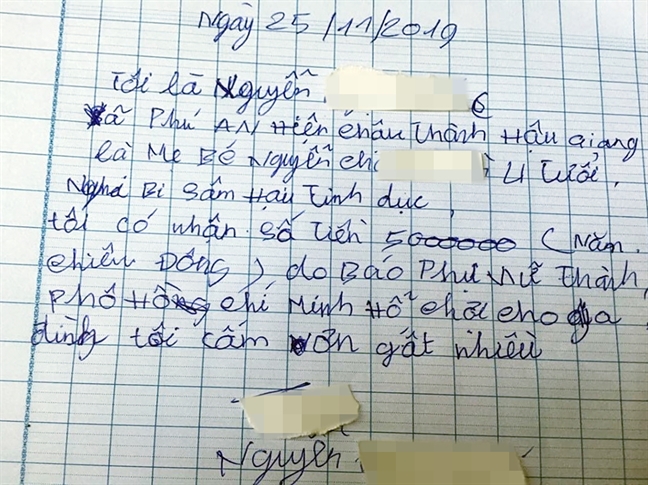 Ngày 25/11/2019
Tôi là Nguyễn
Xã Phú AN Hiên Châu Thành Hậu Giang
là Mẹ Bé Nguyễn chi 4 Tuổi.
Nghi Bi Sâm Hai Tình dục,
tôi có nhận số tiền 5000000 (Năm.
chiêu Đồng) do Báo Phụ Nữ Thành
Phố Hồ chí Minh Hổ chơi cho gia
đình tôi cám ơn gất nhiều
Nguyễn